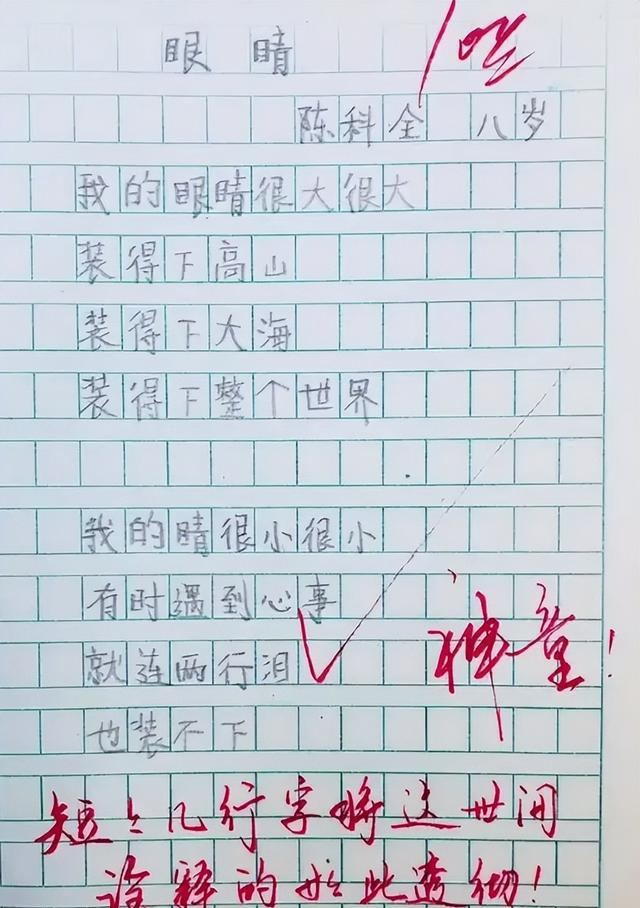 眼睛
陈科全 八岁
我的眼睛很大很大
装得下高山
装得下大海
装得下整个世界
我的睛很小很小
有时遇到心事
就连两行泪
也装不下
神童!
短々几行字将这世间
诠释的如此透彻!